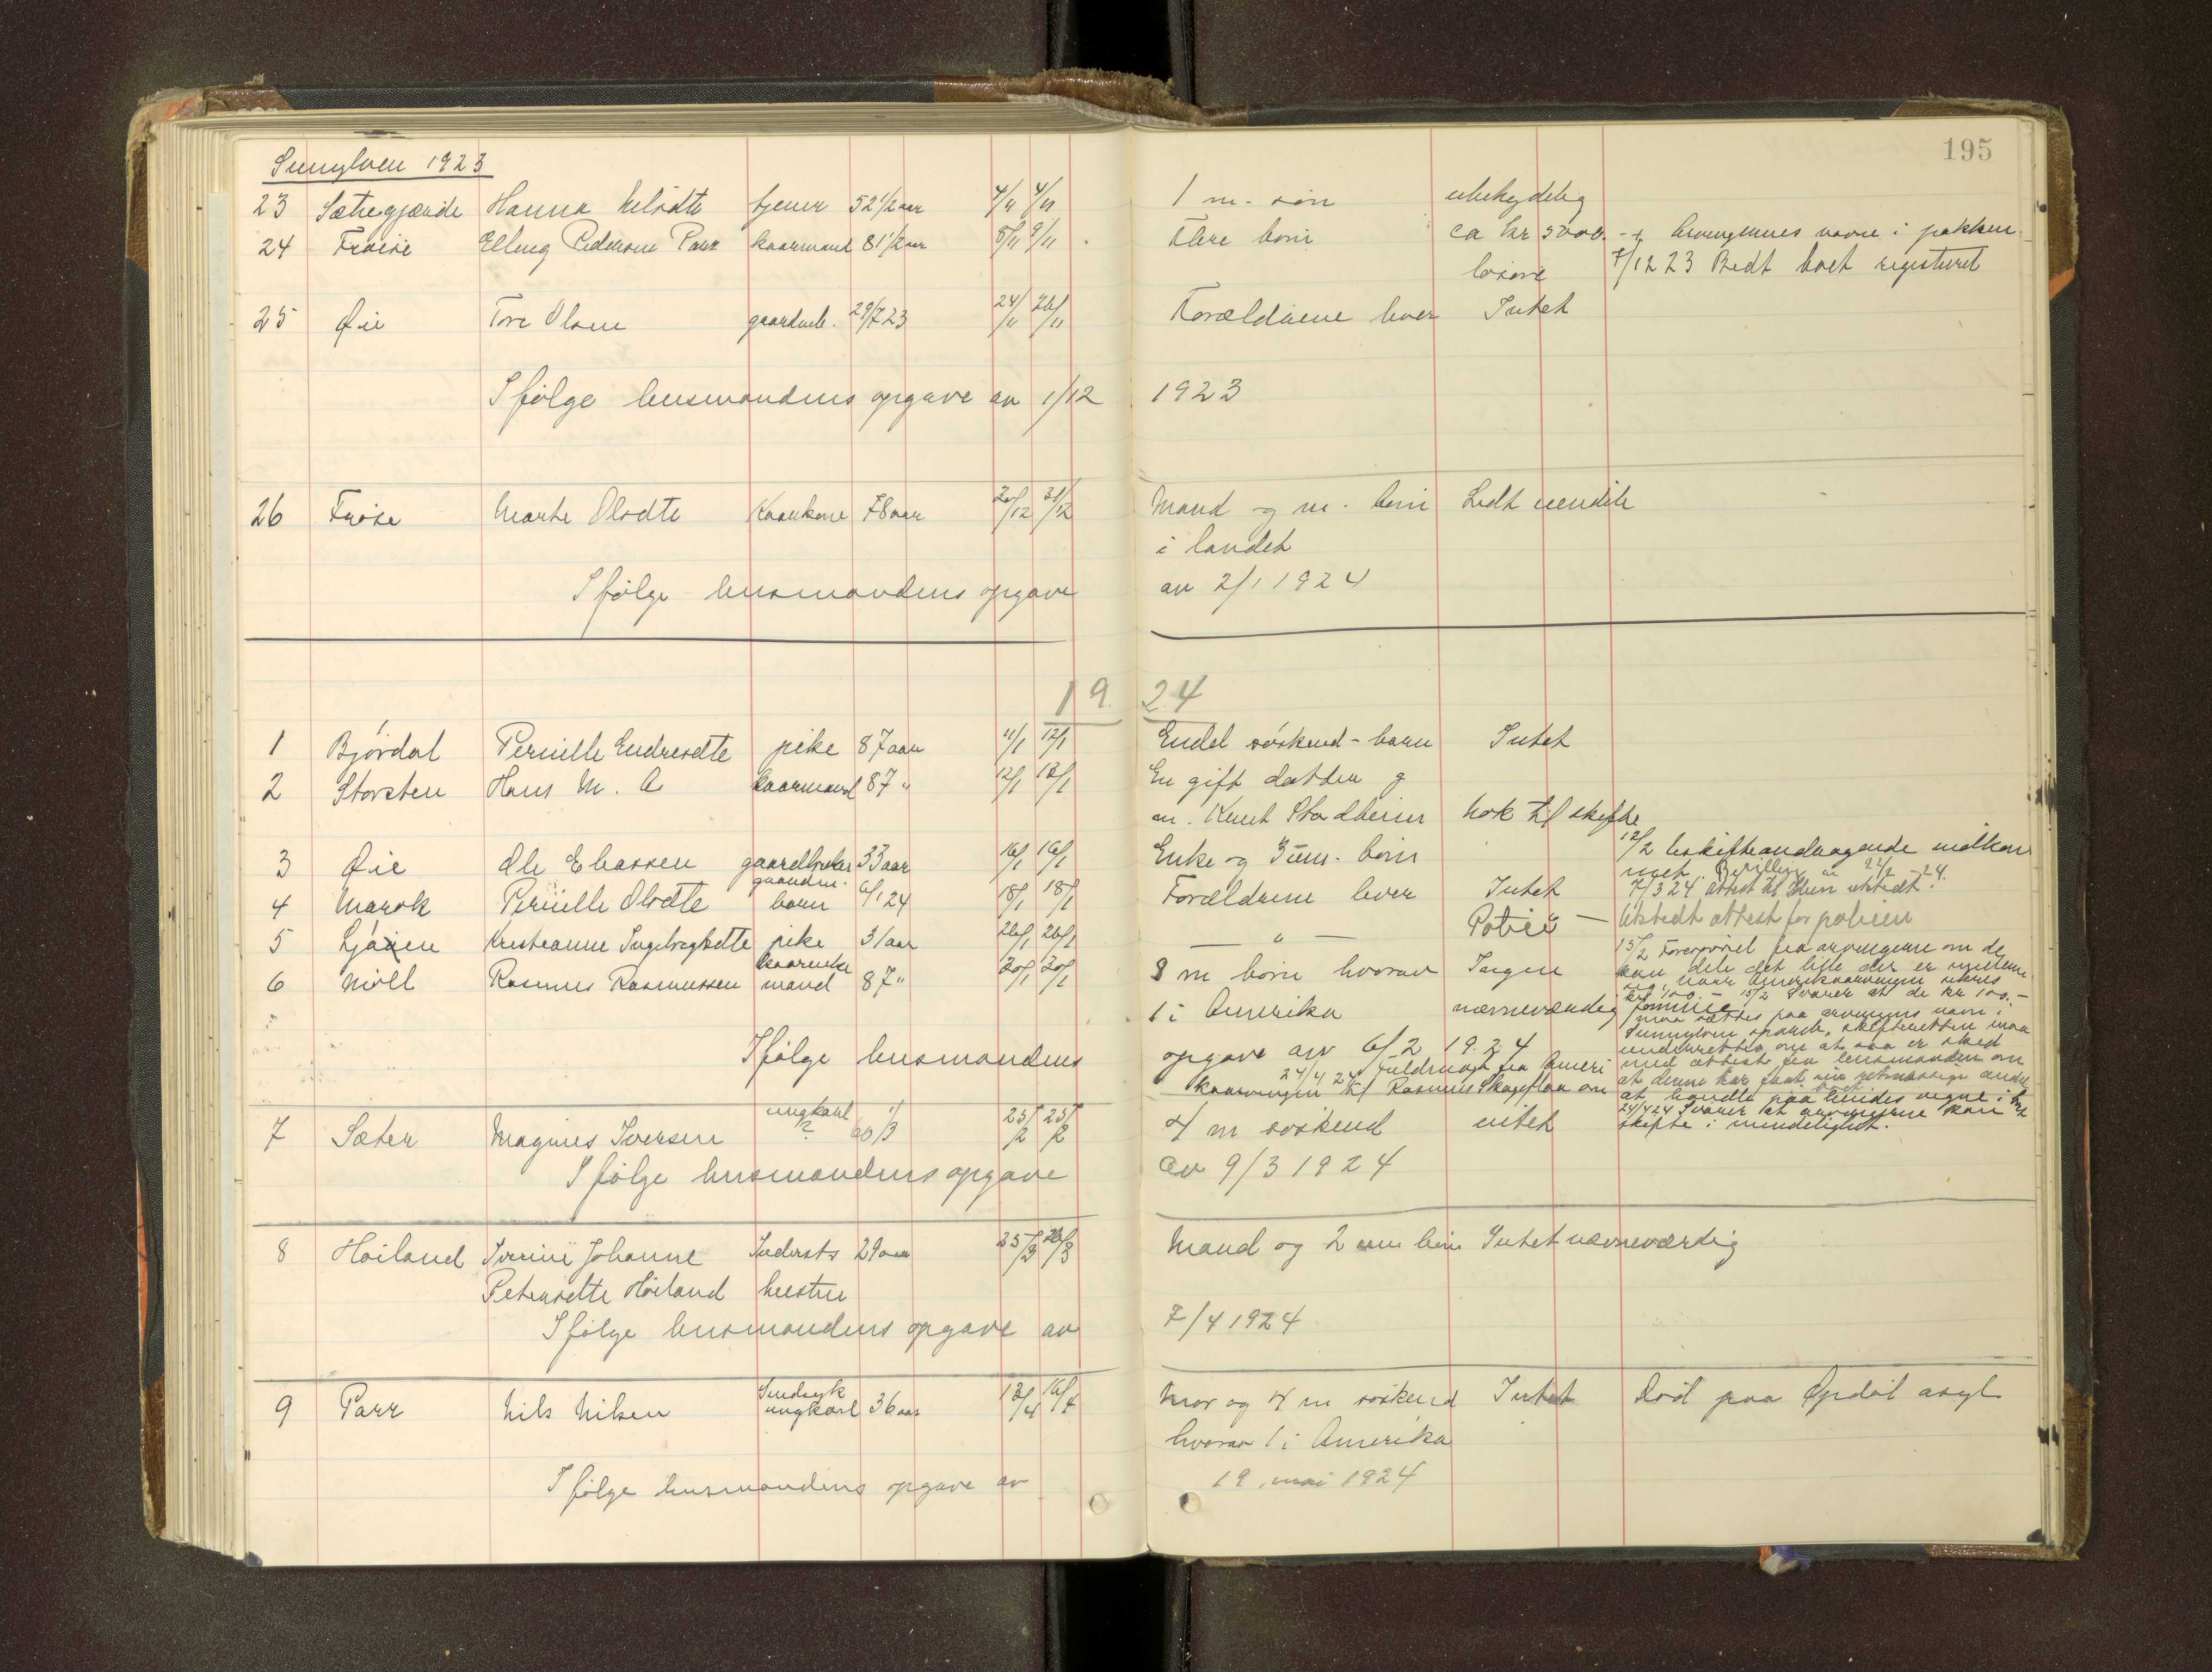 195
Sunylven 1923
23 Sætregjærde Hanna Nilsdtr tjener 52 1/2 aar 4/11 4/11 1 m. søn ubetydelig
24 Frøise Elling Pedersen Parr kaarmand 81 1/2 aar 8/11 9/11 Flere børn ca kr 5000.- i arvingernes navne i pakken.
løsøre 7/12 23 Bedt boet registreret
25 Øie Tore Olsen gaardm b. 29/7 23 24/11 26/11 Forældrene lever Intet
Ifølge lensmandens opgave av 1/12 1923
26 Frøise Marte Olsdtr Kaarkone 78 aar 20/12 21/12 Mand og m. børn Ledt uendite
i landet
Ifølge lensmandens opgave av 2/1 1924
1924
1 Bjørdal Pernille Endresdtr pike 87 aar 11/1 12/1 Endel søskend-barn Intet
2 Storsten Hans M. A kaarmand 87 " 12/1 12/1 En gift datter g
m. Knut Stadheim nok til skifte
3 Øie Ole Eliassen gaardbruker 33 aar 16/1 16/1 Enke og 3 um. børn 12/2 Uskifteandragende mottatt
Bevilling 24/2 -24.
gaardm.
4 Marok Pernille Olsdtr barn 6/1 24 18/1 18/1 Forældrene lever Intet 7/3 24 Attest til utstedt.
5 Ljøen Kristianne Ingebrigtsdtr pike 31 aar 26/1 26/1 — " — Police — Utstedt attest for polisen
kaarenke
6 Móll Rasmus Rasmussen mand 87 " 30/1 30/1 8 m børn hvorav Ingen 15/2 Forespørsel fra arvingerne om de
kan dele det lille der er mellem
sig, naar Amerikaarvingen sikres
kr 100.- 15/2 Svarer at de kr 100.-
1 i Amerika nævneværdig formue
maa sættes paa arvingens navn i
Sunnylven spareb. skifteretten maa
Ifølge lensmandens opgave av 6/2 1924 underrettes om at saa er sked
24/4 24 Fuldmagt fra Ameri med attest fra lensmanden om
kaarvingen til Rasmus Skagflaa om at denne har faat sin retmæssige andel
at handle paa hendes vegne i boet
24/4 24 Svarer at arvingerne kan
skifte i mindelighet.
ungkarl
7 Sæter Magnus Iversen ? 60 1/3 25/2 25/2 4 m søskend intet
Ifølge lensmandens opgave av 9/3 1924
8 Høiland Iverine Johanne Indersts 29 aar 25/3 26/3 Mand og 2 um børn Intet nævneværdig
Petersdtr Høiland hustru
Ifølge lensmandens opgave av 7/4 1924
Sindsyk
9 Parr Nils Nilsen ungkarl 36 aar 13/4 16/4 Mor og 4 m søskend Intet Død paa Opdøl asyl
hvorav 1 i Amerika
Ifølge lensmandens opgave av 19. mai 1924